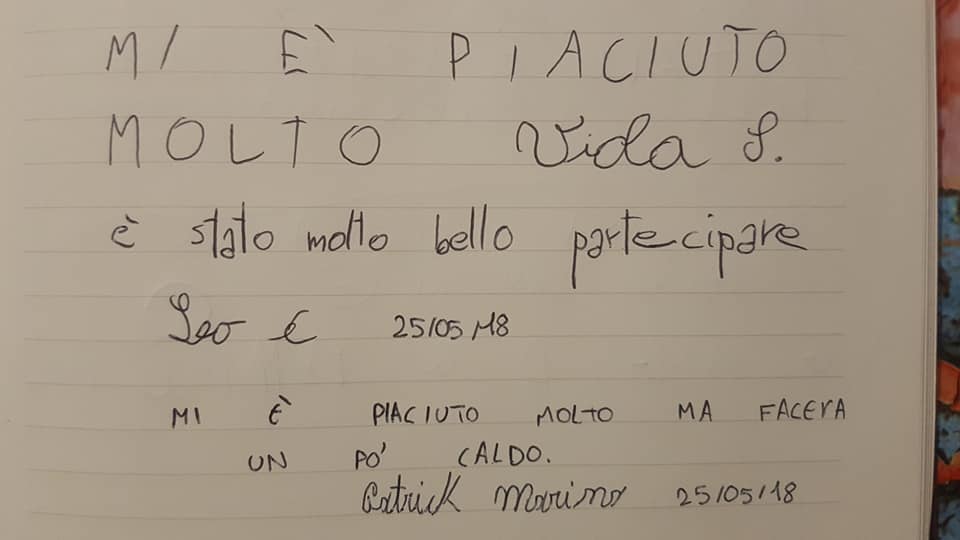 MI È PIACIUTO
MOLTO Viola S.
è stato molto bello partecipare
Leo E 25/05/18
MI È PIACIUTO MOLTO MA FACEVA
UN PO' CALDO.
Patrick Marino 25/05/18